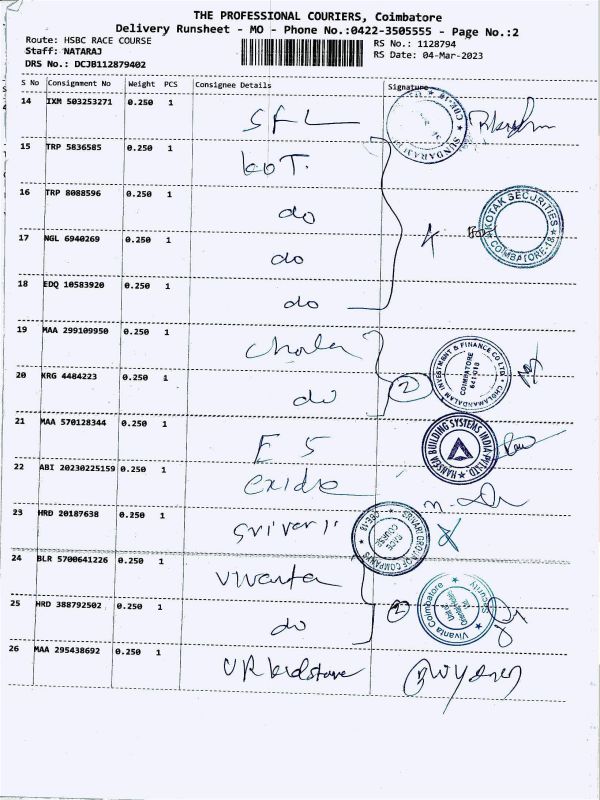 THE PROFESSIONAL COURIERS, Coimbatore
Delivery Runsheet - MO - Phone No.:0422-3505555 - Page No.:2
Route: HSBC RACE COURSE
RS No.: 1128794
Staff: NATARAJ
RS Date: 04-Mar-2023
DRS No.: DCJB112879402
S No Consignment No Weight PCS Consignee Details Signature
14 IXM 503253271 0.250 1 SFL
15 TRP 5836585 0.250 1
16 TRP 8088596 0.250 1 do
KOTAK SECURITIES
COIMBATORE-18
17 NGL 6940269 0.250 1 do 4
18 EDQ 10583920 0.250 1 do
19 MAA 299109950 0.250 1 Chola
CHOLAMANDALAM INVESTMENT & FINANCE CO LTD
COIMBATORE
641 018
20 KRG 4484223 0.250 1 do 2
21 MAA 570128344 0.250 1
HANSEM BUILDING SYSTEMS INDIA PVT LTD.
22 ABI 20230225159 0.250 1 exide
23 HRD 20187638 0.250 1 srivari
SRIVARI GROUP OF COMPANIES
RACE
COURSE
CBE-18
24 BLR 5700641226 0.250 1 vivanta
25 HRD 388792502 0.250 1 do 2
Vivanta Coimbatore
Security
26 MAA 295438692 0.250 1